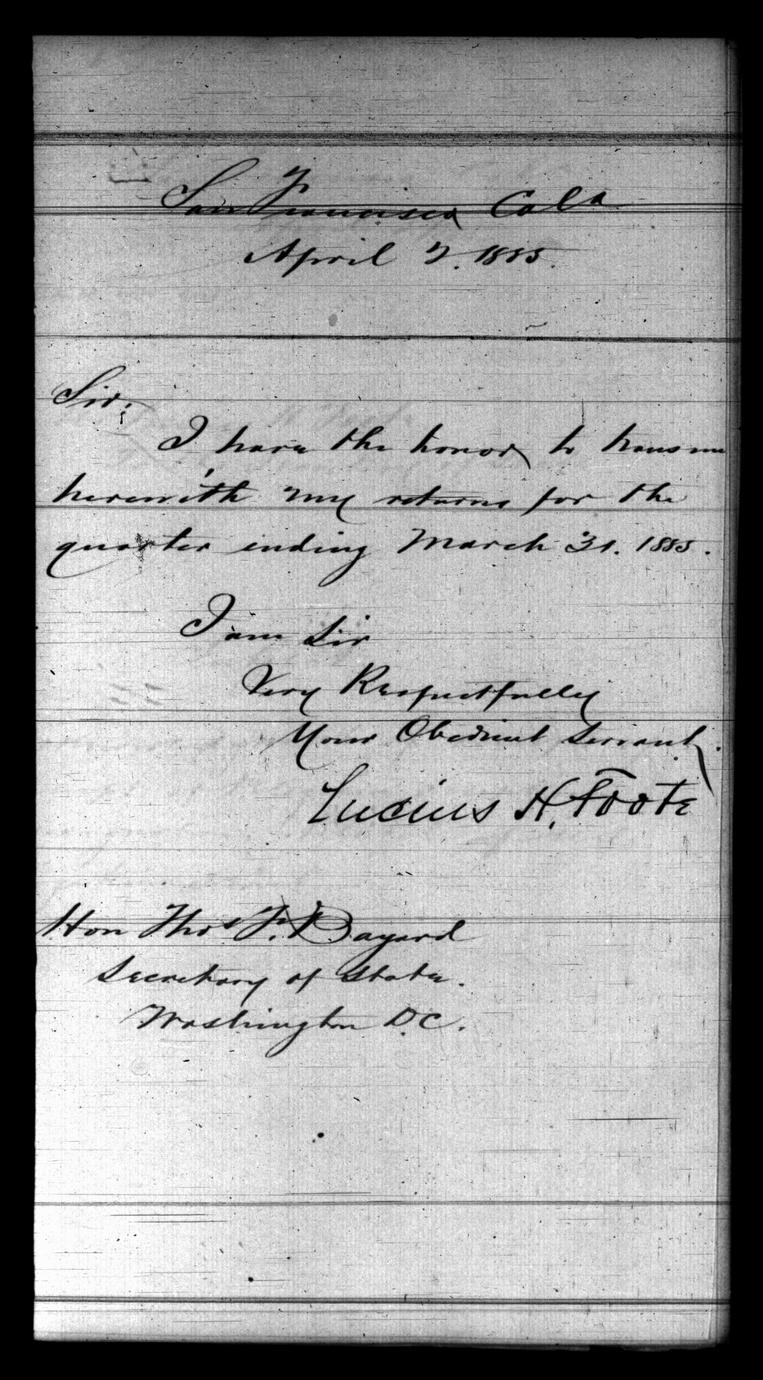 San Francisco Cala
April 2. 1885.
Sir;
I have the honor to transm
herewith my returns for the
quarter ending March 31. 1885.
I am Sir
Very Respectfully
Your Obedient Servant.
Lucius H. Foote
Hon Thos F. Bayard
Secretary of State.
Washington D.C.